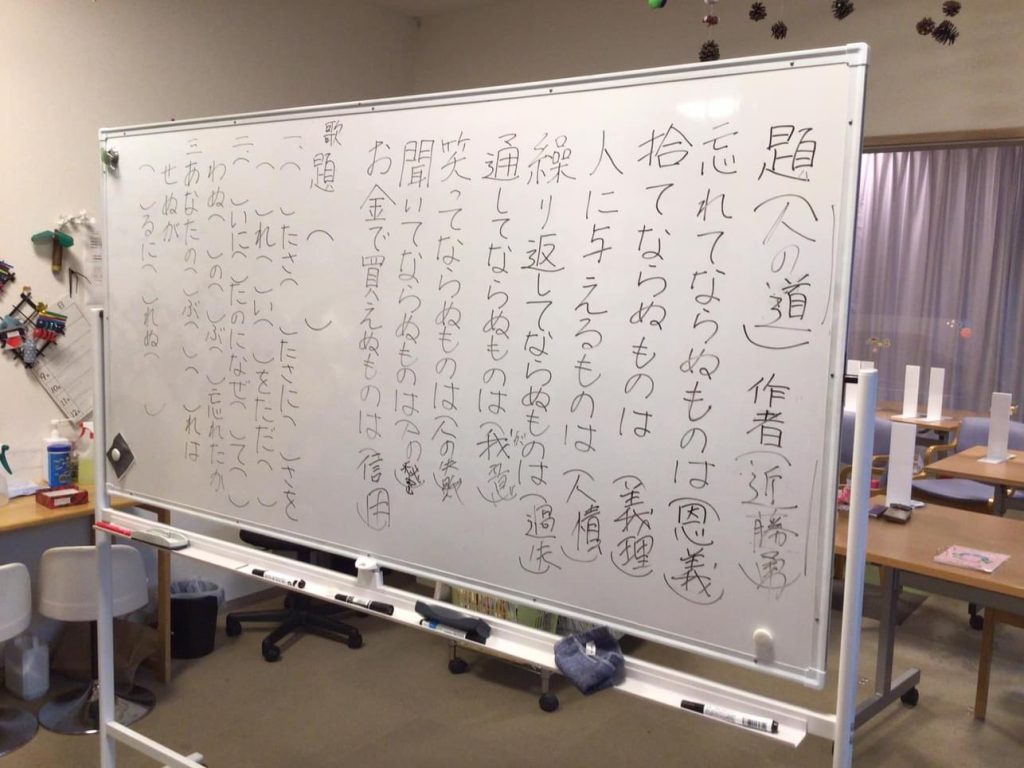 題(人の道) 作者(近藤勇)
忘れてならぬものは(恩義)
拾てならぬものは(義理)
人に与えるものは(人情)
繰り返してならぬものは(過失)
通してならぬものは(我意)
笑ってならぬものは(人の失敗)
聞いてならぬものは(人の秘密)
お金で買えぬものは(信用)
歌題( )
一、( )たさに( )したさに( )さを
( )れ( )い( )をただ( )
二、( )いに( )たのになぜ( )て( )
わぬ( )の( )ぶ( )忘れたか
三、あなたの( )ぶ( )( )れは
せぬが
( )るに( )れぬ( )